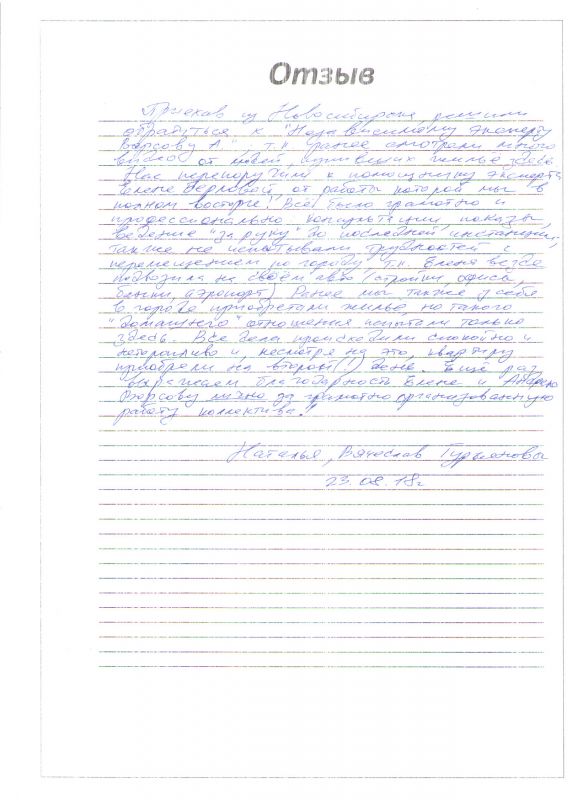 Отзыв
Приехав из Новосибирска, решили
обратиться к "Независимому эксперту
Борсову А.", т.к. ранее смотрели много
видео от людей, купивших жилье здесь.
Нас перепоручили к помощнику эксперта
Елене, от работы которой мы в
полном восторге! Всё было грамотно и
профессионально: консультации, показы,
ведение "за руку" до последней инстанции,
также не испытывали трудностей с
перемещением по городу, т.к. Елена везде
подвозила на своём авто (стройки, офисы,
банки, аэропорт). Ранее мы также у себя
в городе приобретали жилье, но такого
"домашнего" отношения испытали только
здесь. Все дела происходили спокойно и
неторопливо и, несмотря на это, квартиру
приобрели на второй(!) день. Ещё раз
выражаем благодарность Елене и Андрею
Борсову лично за грамотно организованную
работу коллектива!
Наталья, Вячеслав Гурьяновы
23.08.18г